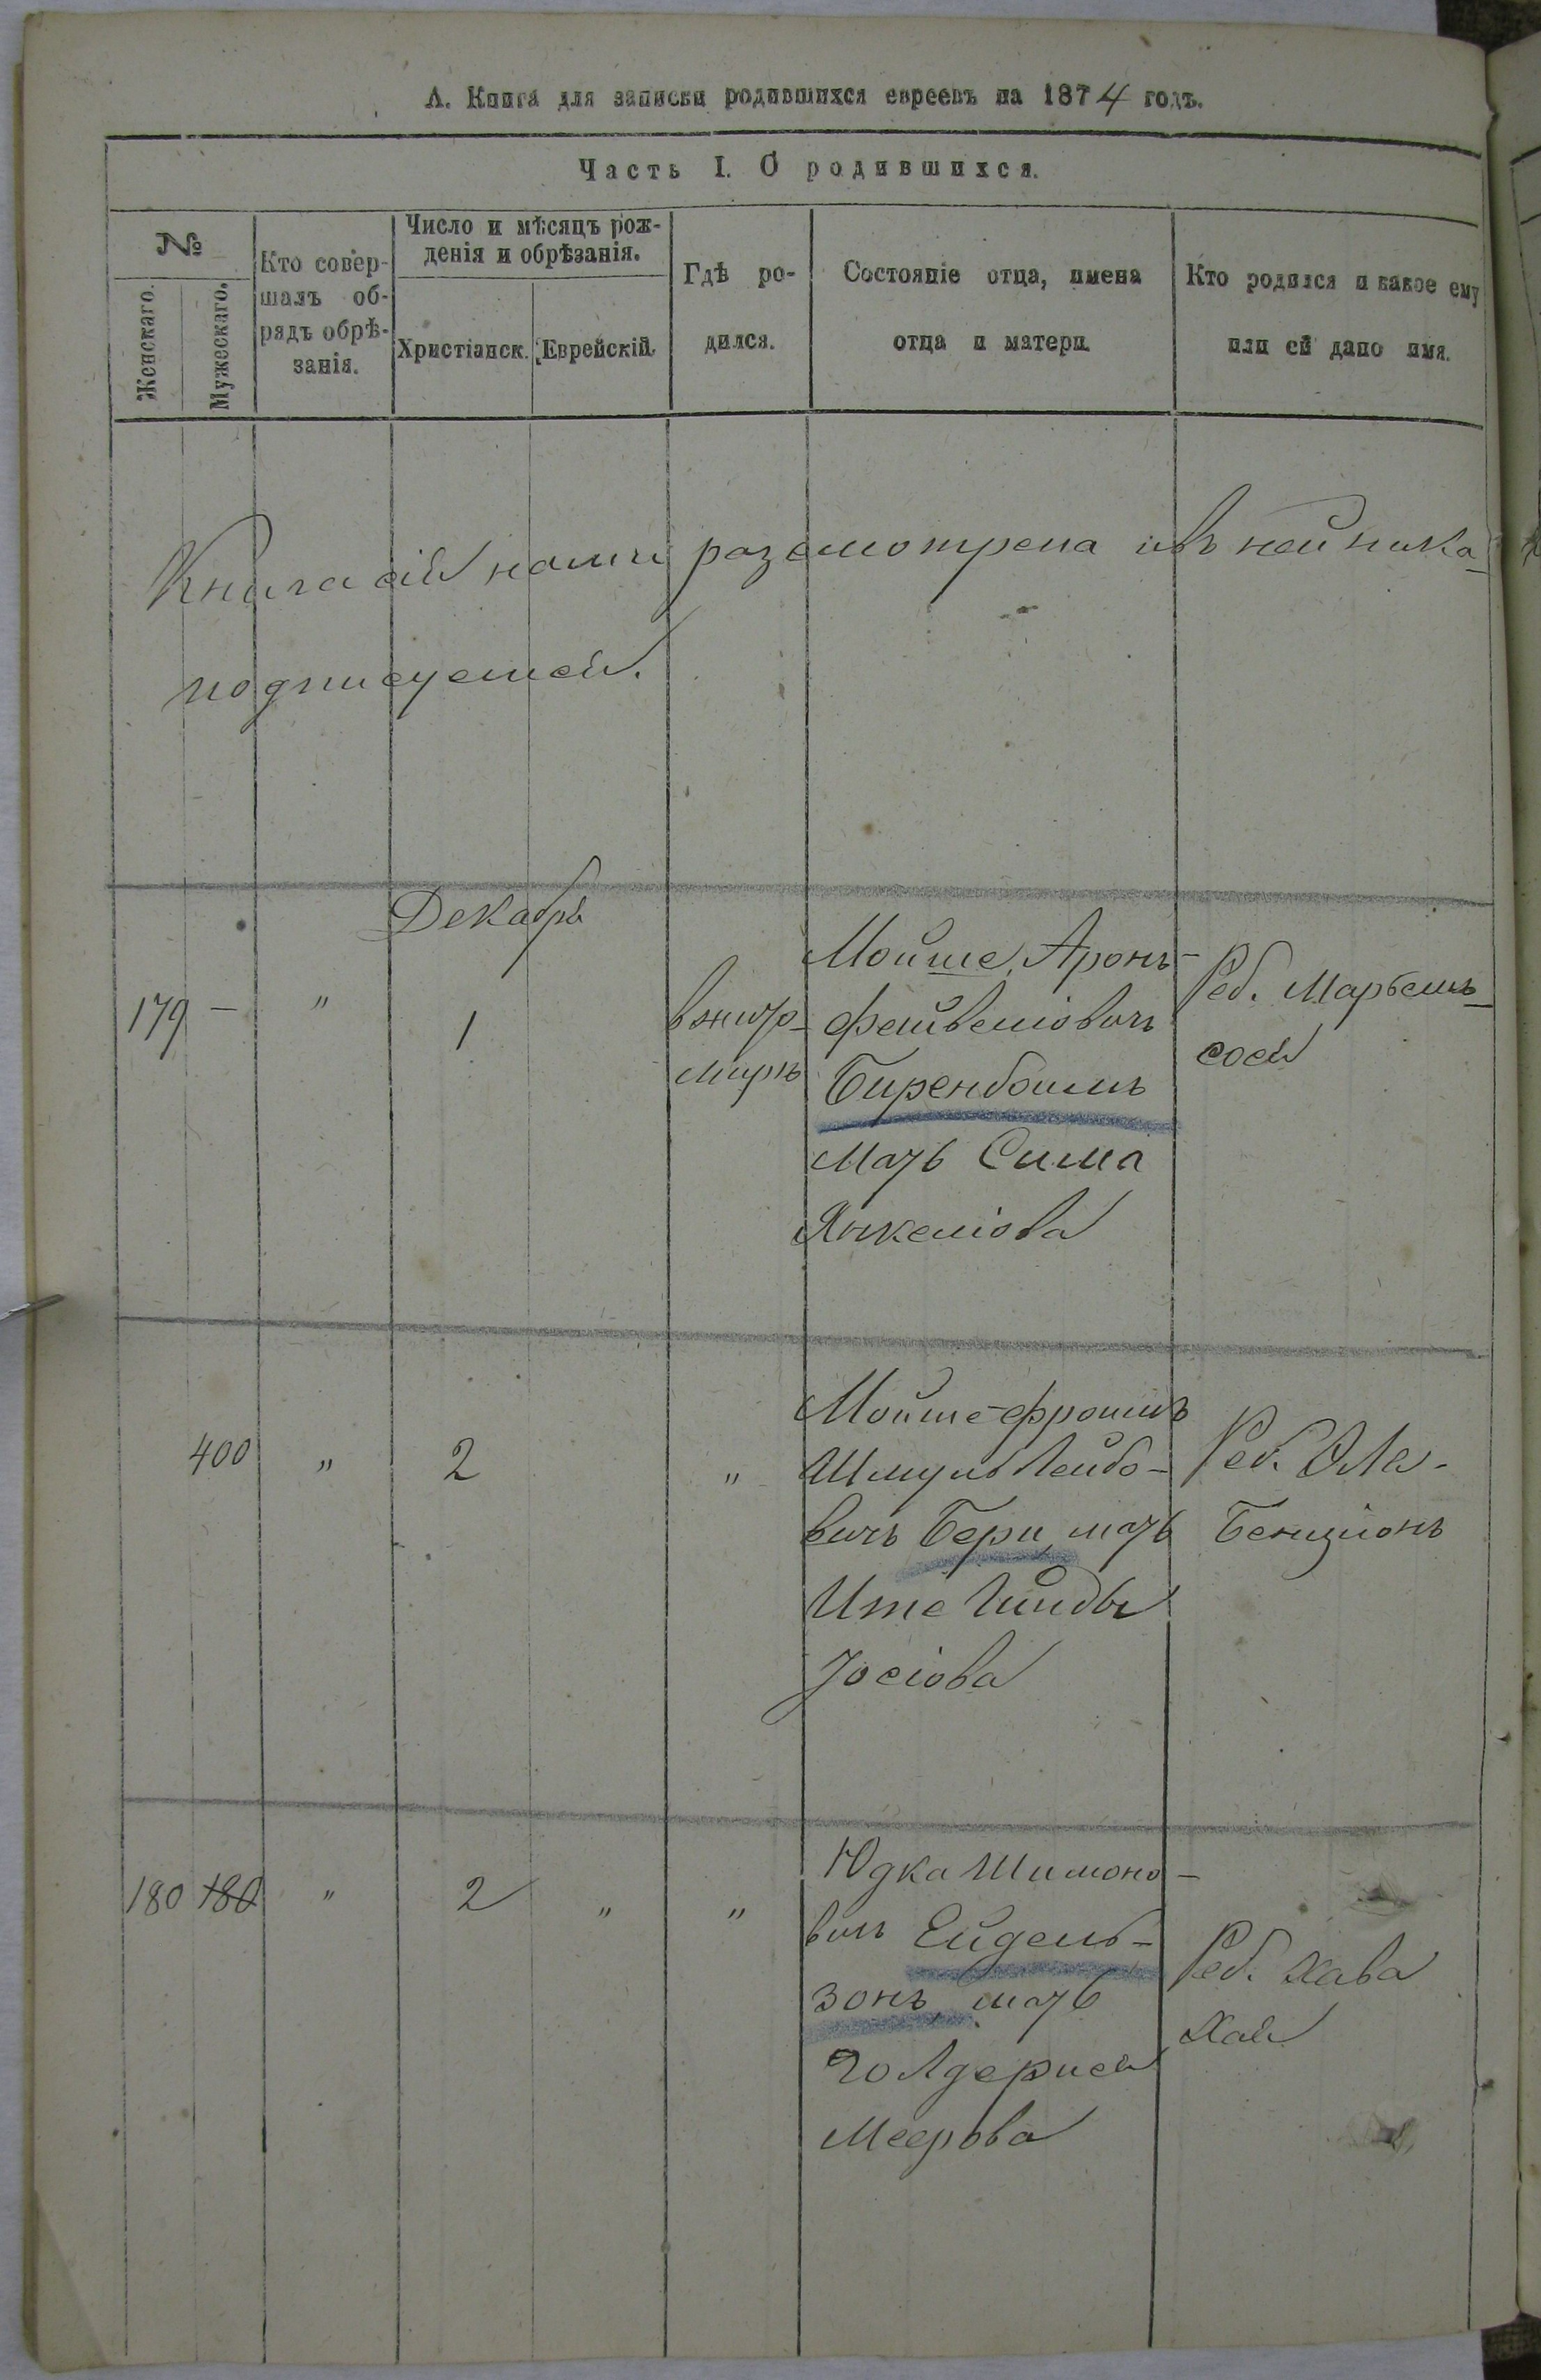 А. Книга для записки родившихся евреевъ на 1874 годъ.
Часть I. О родившихся.
№
Женскаго.
Мужескаго.
Кто совер-
шалъ об-
рядъ обрѣ-
занія.
Число и мѣсяцъ рож-
денія и обрѣзанія.
Христіанск.
Еврейскій.
Гдѣ ро-
дился.
Состояніе отца, имена
отца и матери.
Кто родился и какое ему
или ей дано имя.
Книга сія нами разсмотрена и въ ней ника-
подписуемся.
Декабрь
179 — " 1
в жито-
мирѣ
Мойше, Аронъ-
Файвелiовичъ
Биренбоимъ
мать Сима
Янкелiова
Реб. Марьемъ-
сося
400 " 2 "
Мойше-Фроимъ
Шмуль Лейбо-
вичъ Бери, мать
Ите
Іосіова
Реб.
Бенціонъ
180 180 " 2 " "
Юдка Шимоно-
вичъ Ейдель-
зонъ, мать
Меерова
Реб. Хава
Хая